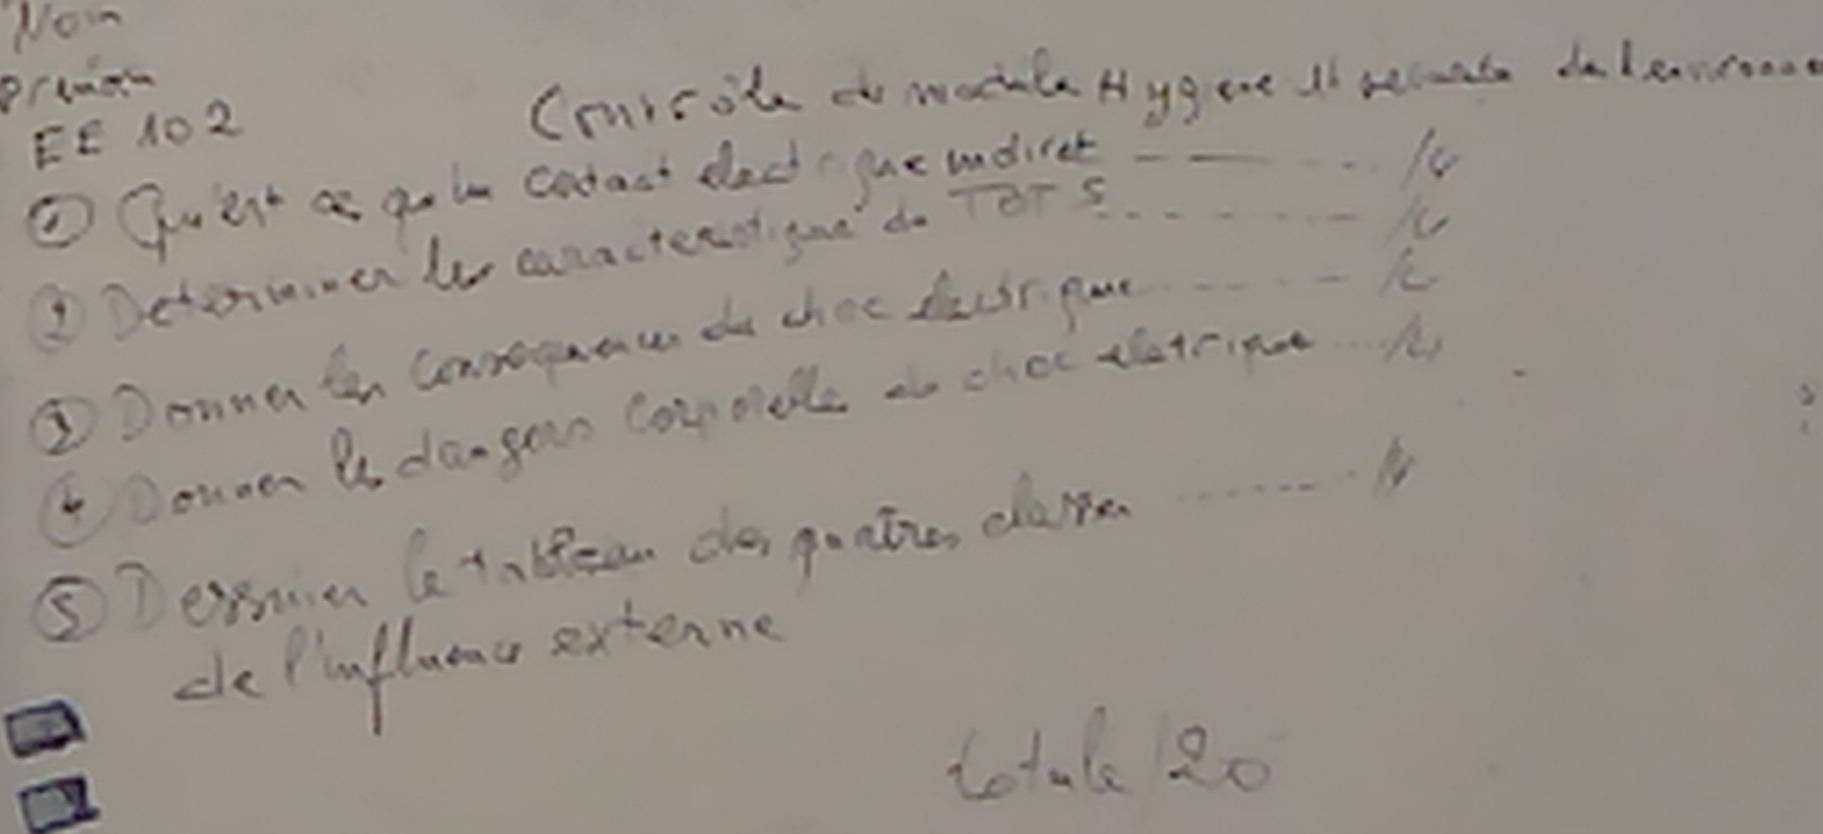 Nom
prenom
EE 102
Contrôle de module Hygiene et securite de l'environne
① Qu'est ce qu'un contact electrique indiret /4
② Determiner les caracteristique de TBTS /4
③ Donner les consequences du choc electrique /4
④ Donner les dangers corporelle de choc eletrique /4
⑤ Dessiner le tableau des quatres classes /4
de l'influence externe
totale /20